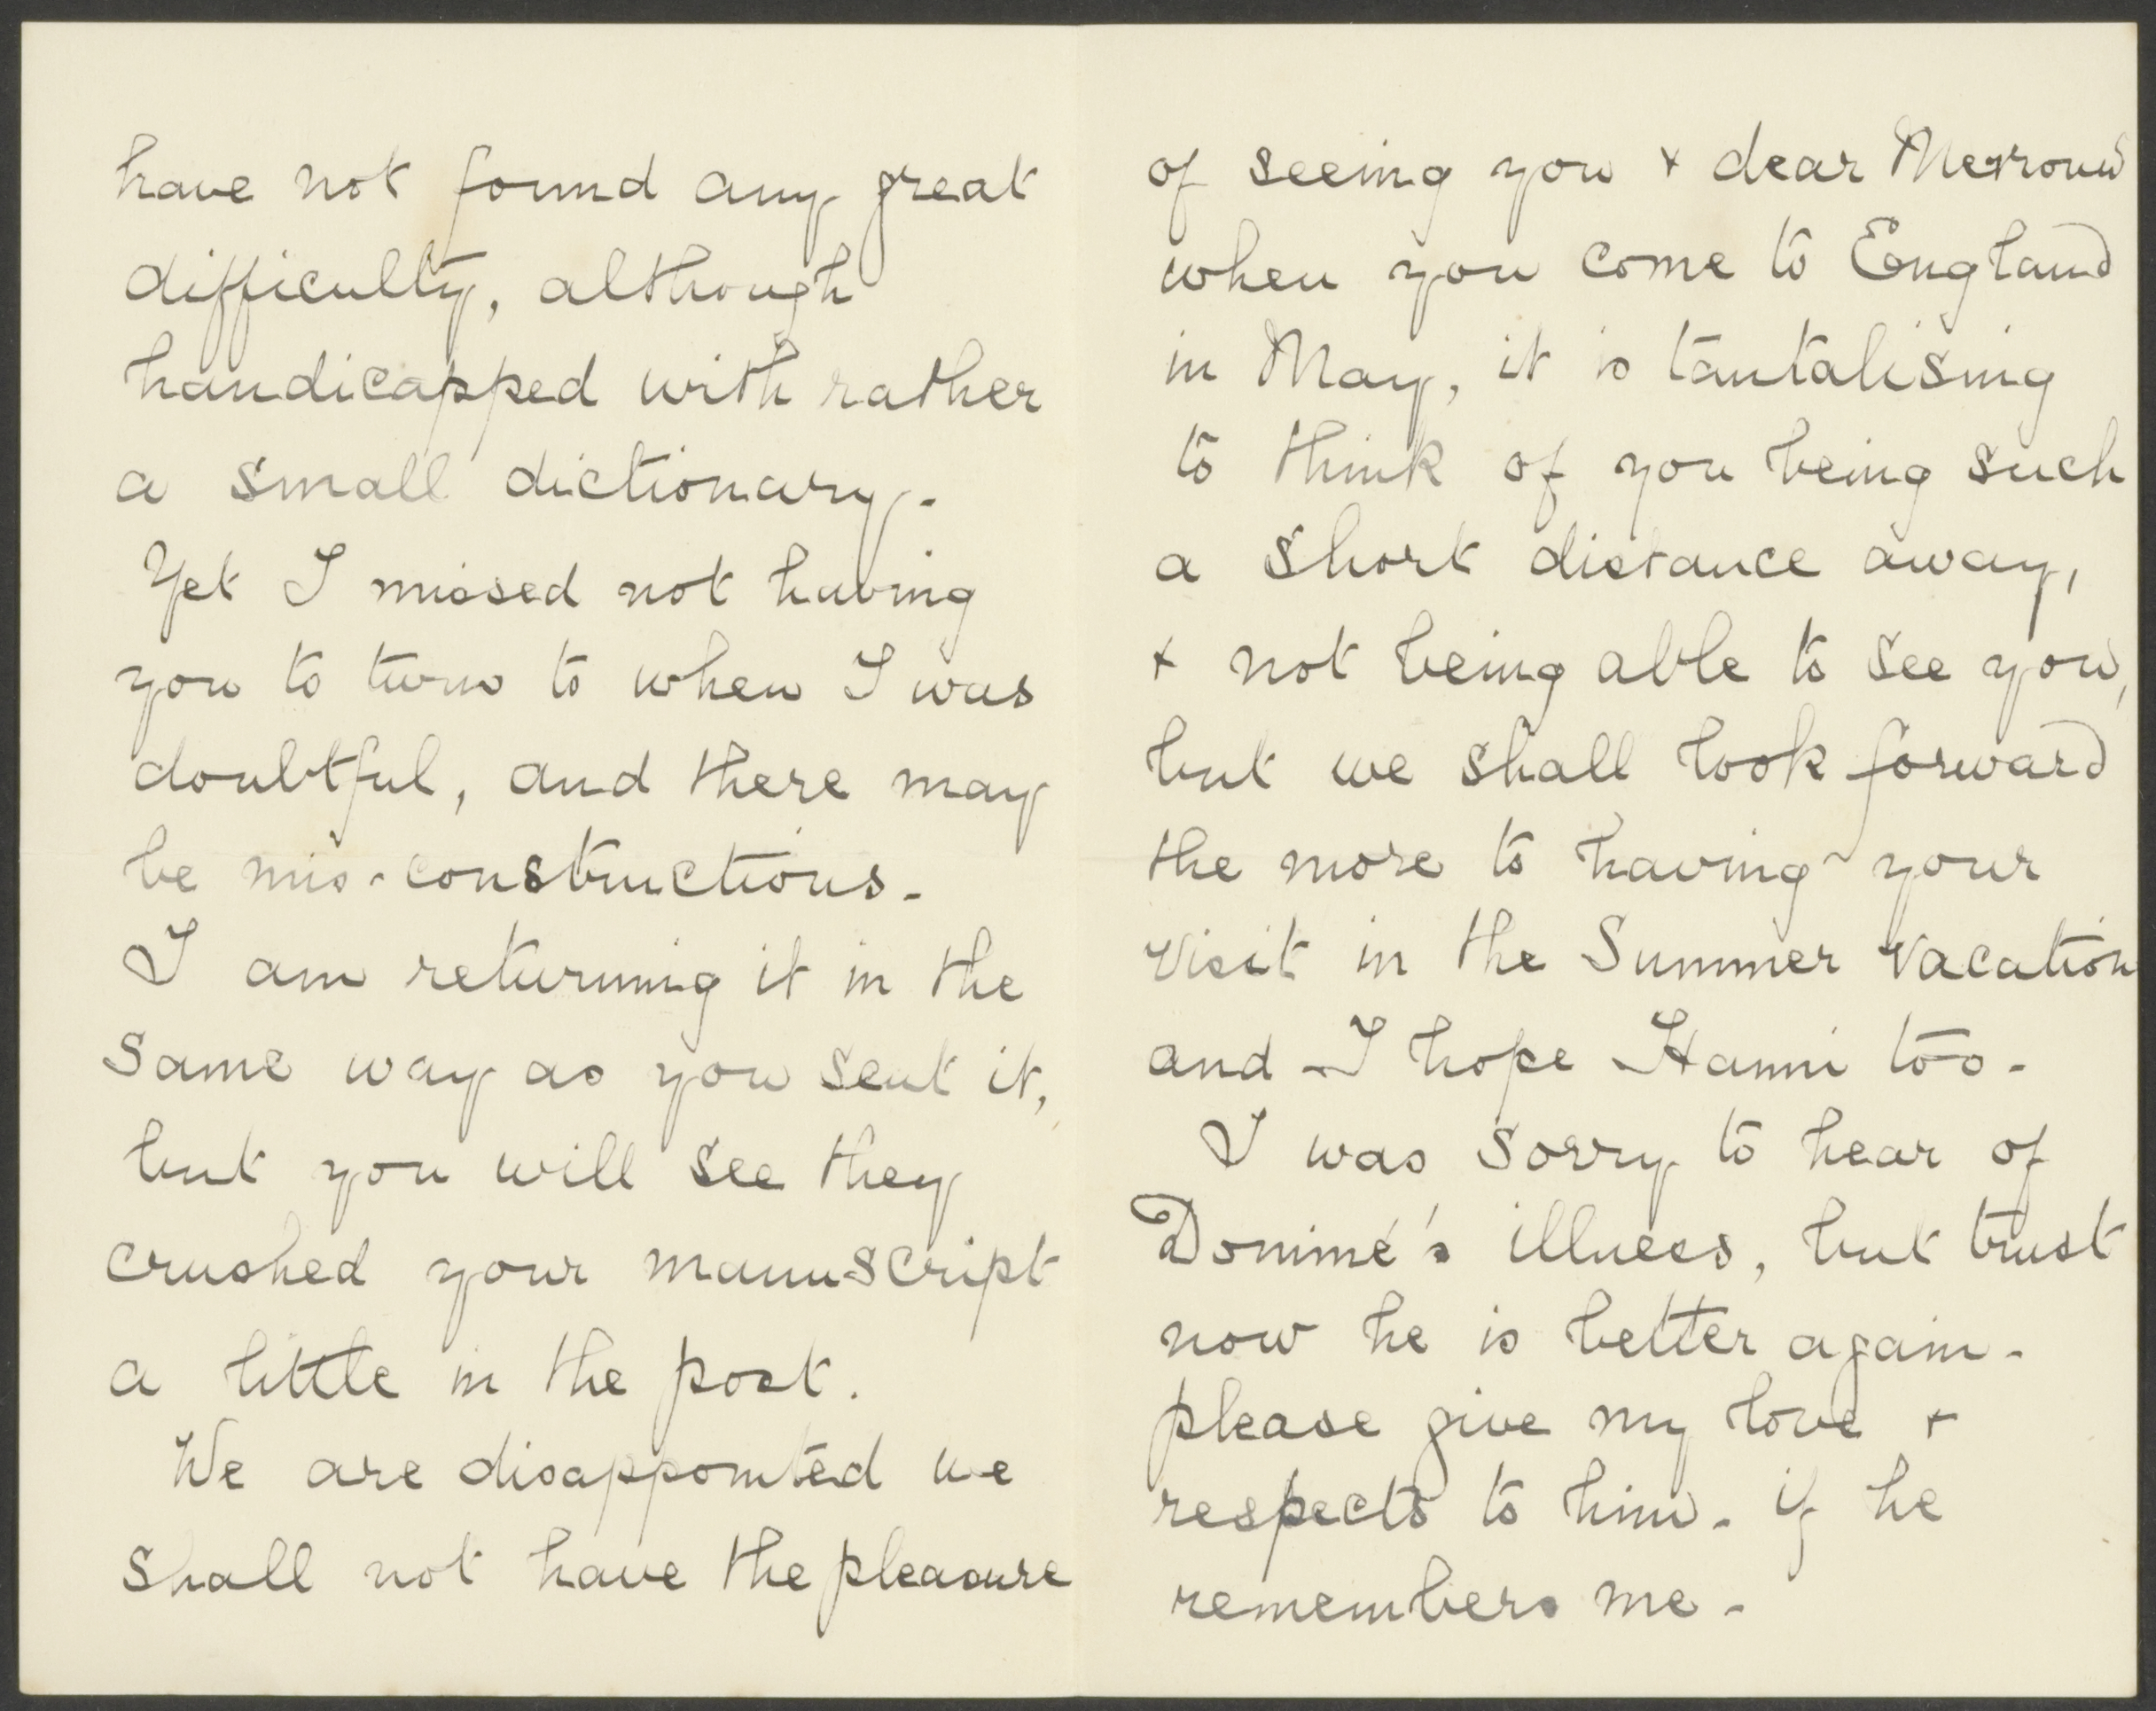 have not found any great
difficulty, although
handicapped with rather
a small dictionary.
Yet I missed not having
you to turn to when I was
doubtful, and there may
be mis-constructions.
I am returning it in the
same way as you sent it,
but you will see they
crushed your manuscript
a little in the post.
We are disappointed we
shall not have the pleasure
of seeing you + dear Mevrouw
when you come to England
in May, it is tantalising
to think of you being such
a short distance away,
+ not being able to see you,
but we shall look forward
the more to having your
visit in the Summer Vacation
and I hope Hanni too.
I was sorry to hear of
Dominé's illness, but trust
now he is better again.
please give my love +
respects to him. if he
remembers me.